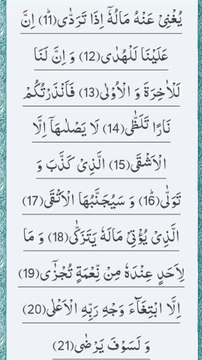 یُغْنِیْ عَنْهُ مَالُهٗۤ اِذَا تَرَدّٰی(11) اِنَّ
عَلَیْنَا لَلْهُدٰی(12) وَ اِنَّ لَنَا
لَلْاٰخِرَةَ وَ الْاُوْلٰی(13) فَاَنْذَرْتُكُمْ
نَارًا تَلَظّٰی(14) لَا یَصْلٰىهَاۤ اِلَّا
الْاَشْقَی(15) الَّذِیْ كَذَّبَ وَ
تَوَلّٰی(16) وَ سَیُجَنَّبُهَا الْاَتْقَی(17)
الَّذِیْ یُؤْتِیْ مَالَهٗ یَتَزَكّٰی(18) وَ مَا
لِاَحَدٍ عِنْدَهٗ مِنْ نِّعْمَةٍ تُجْزٰۤی(19)
اِلَّا ابْتِغَآءَ وَجْهِ رَبِّهِ الْاَعْلٰی(20)
وَ لَسَوْفَ یَرْضٰی(21)